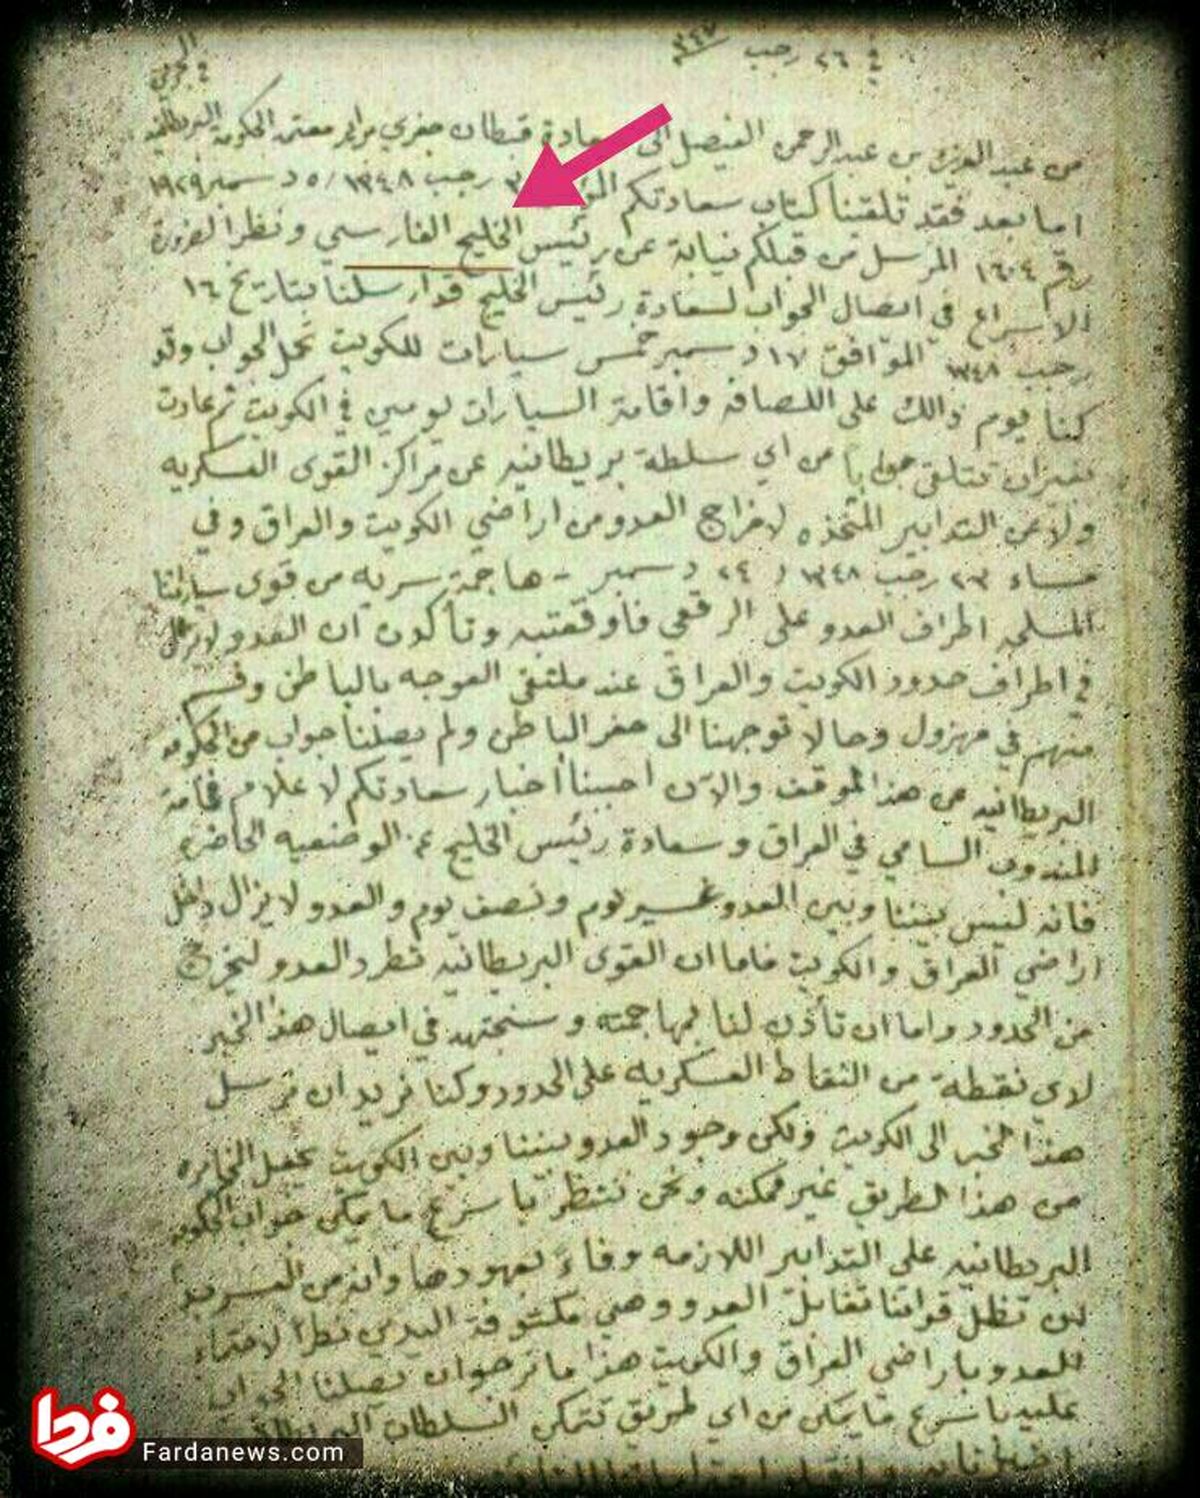 في ٢٦ رجب
من عبد العزيز بن عبد الرحمن الفيصل الى سعادة قبطان معتمد الحكومة البريطانيه
اما بعد فقد تلقينا كتاب سعادتكم رجب ١٣٤٨ / ٥ دسمبر ١٩٢٩
رقم ١٦٠٤ المرسل من قبلكم نيابة عن رئيس الخليج الفارسي ونظرا لضرورة
الاسراع في ايصال الجواب لسعادة رئيس الخليج قد ارسلنا بتاريخ ١٦
رجب ١٣٤٨ الموافق ١٧ دسمبر خمس سيارات للكويت تحمل الجواب وقد
كنا يوم ذالك على اللصافه واقامة السيارات يومين في الكويت ثم عادت
بغير ان نتلقى جوابا من اي سلطة بريطانيه عن مراكز القوى العسكريه
ولا عن التدابير المتخذه لاخراج العدو من اراضي الكويت والعراق وفي
مساء ٢٣ رجب ١٣٤٨ / ٢٤ دسمبر - هاجمة سريه من قوى سياراتنا
المسلحه اطراف العدو على الرقعي فاوقعتبه وتأكدن ان العدو لايزال
في اطراف حدود الكويت والعراق عند ملتقى العوجه بالباطن وقسم
منهم في مهزول وحالا توجهنا الى حفر الباطن ولم يصلنا جواب من الحكومه
البريطانيه عن هذ الموقف والآن احببنا اخبار سعادتكم لاعلام فخامة
المندوب السامي في العراق وسعادة رئيس الخليج عن الوضعيه الحاضره
فانه ليس بيننا وبين العدو غير يوم ونصف يوم والعدو لا يزال داخل
اراضي العراق والكويت فاما ان القوى البريطانيه تطرد العدو ليخرج
من الحدود واما ان تأذن لنا بمهاجمته وسنجتهد في ايصال هذ الخبر
لاي نقطة من النقاط العسكريه على الحدود وكنا نريد ان نرسل
هذا الخبر الى الكويت ولكن وجود العدو بيننا وبين الكويت يجعل المخابره
من هذا الطريق غير ممكنه ونحن ننتظر باسرع ما يمكن جواب الحكومه
البريطانيه على التدابير اللازمه وفاءً بعهودها وانه من
لان تظل قواتنا تقابل العدو وهي مكتوفة اليدين نظرا لاحتماء
العدو باراضي العراق والكويت هذا ما نرجو ان يصلنا الجواب
عليه باسرع ما يمكن من اي طريق تتمكن السلطات
فردا
Fardanews.com